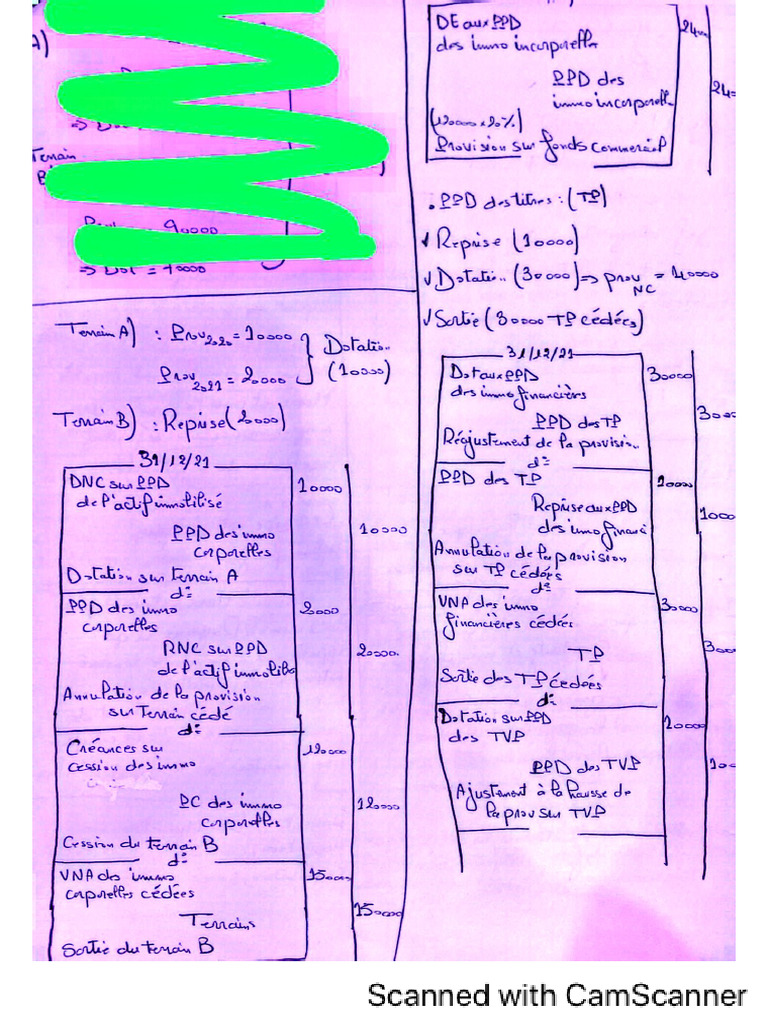 A)
Terrain
B
90000
=> Dot = 70000
Terrain A) : Prov 2020 = 10000
Prov 2021 = 20000
} Dotation (10000)
Terrain B) : Reprise (20000)
31/12/21
DNC sur PPD
de l'actif immobilisé
10000
PPD des immo
corporelles
10000
Dotation sur terrain A
d°
PPD des immo
corporelles
RNC sur PPD
de l'actif immobilis
20000
Annulation de la provision
sur Terrain cédé
d°
Créances sur
cession des immo
PC des immo
corporelles
Cession du terrain B
d°
VNA des immo
corporelles cédées
Terrains
Sortie du terrain B
DE aux PPD
des immo incorporelles
PPD des
immo incorporell
(120000 x 20%)
Provision sur fonds commercial
. PPD des titres : (TP)
✓ Reprise (10000)
✓ Dotation (30000) => prov NC = 40000
✓ Sortie (30000 TP cédées)
31/12/21
Dot aux PPD
des immo financières
30000
PPD des TP
Réajustement de la provision
d°
PPD des TP
10000
Reprise aux PPD
des immo financi
Annulation de la provision
sur TP cédées
d°
VNA des immo
financières cédés
TP
Sortie des TP cédées
d°
Dotation sur PPD
des TVP
PPD des TVP
Ajustement à la hausse de
la prov sur TVP
Scanned with CamScanner